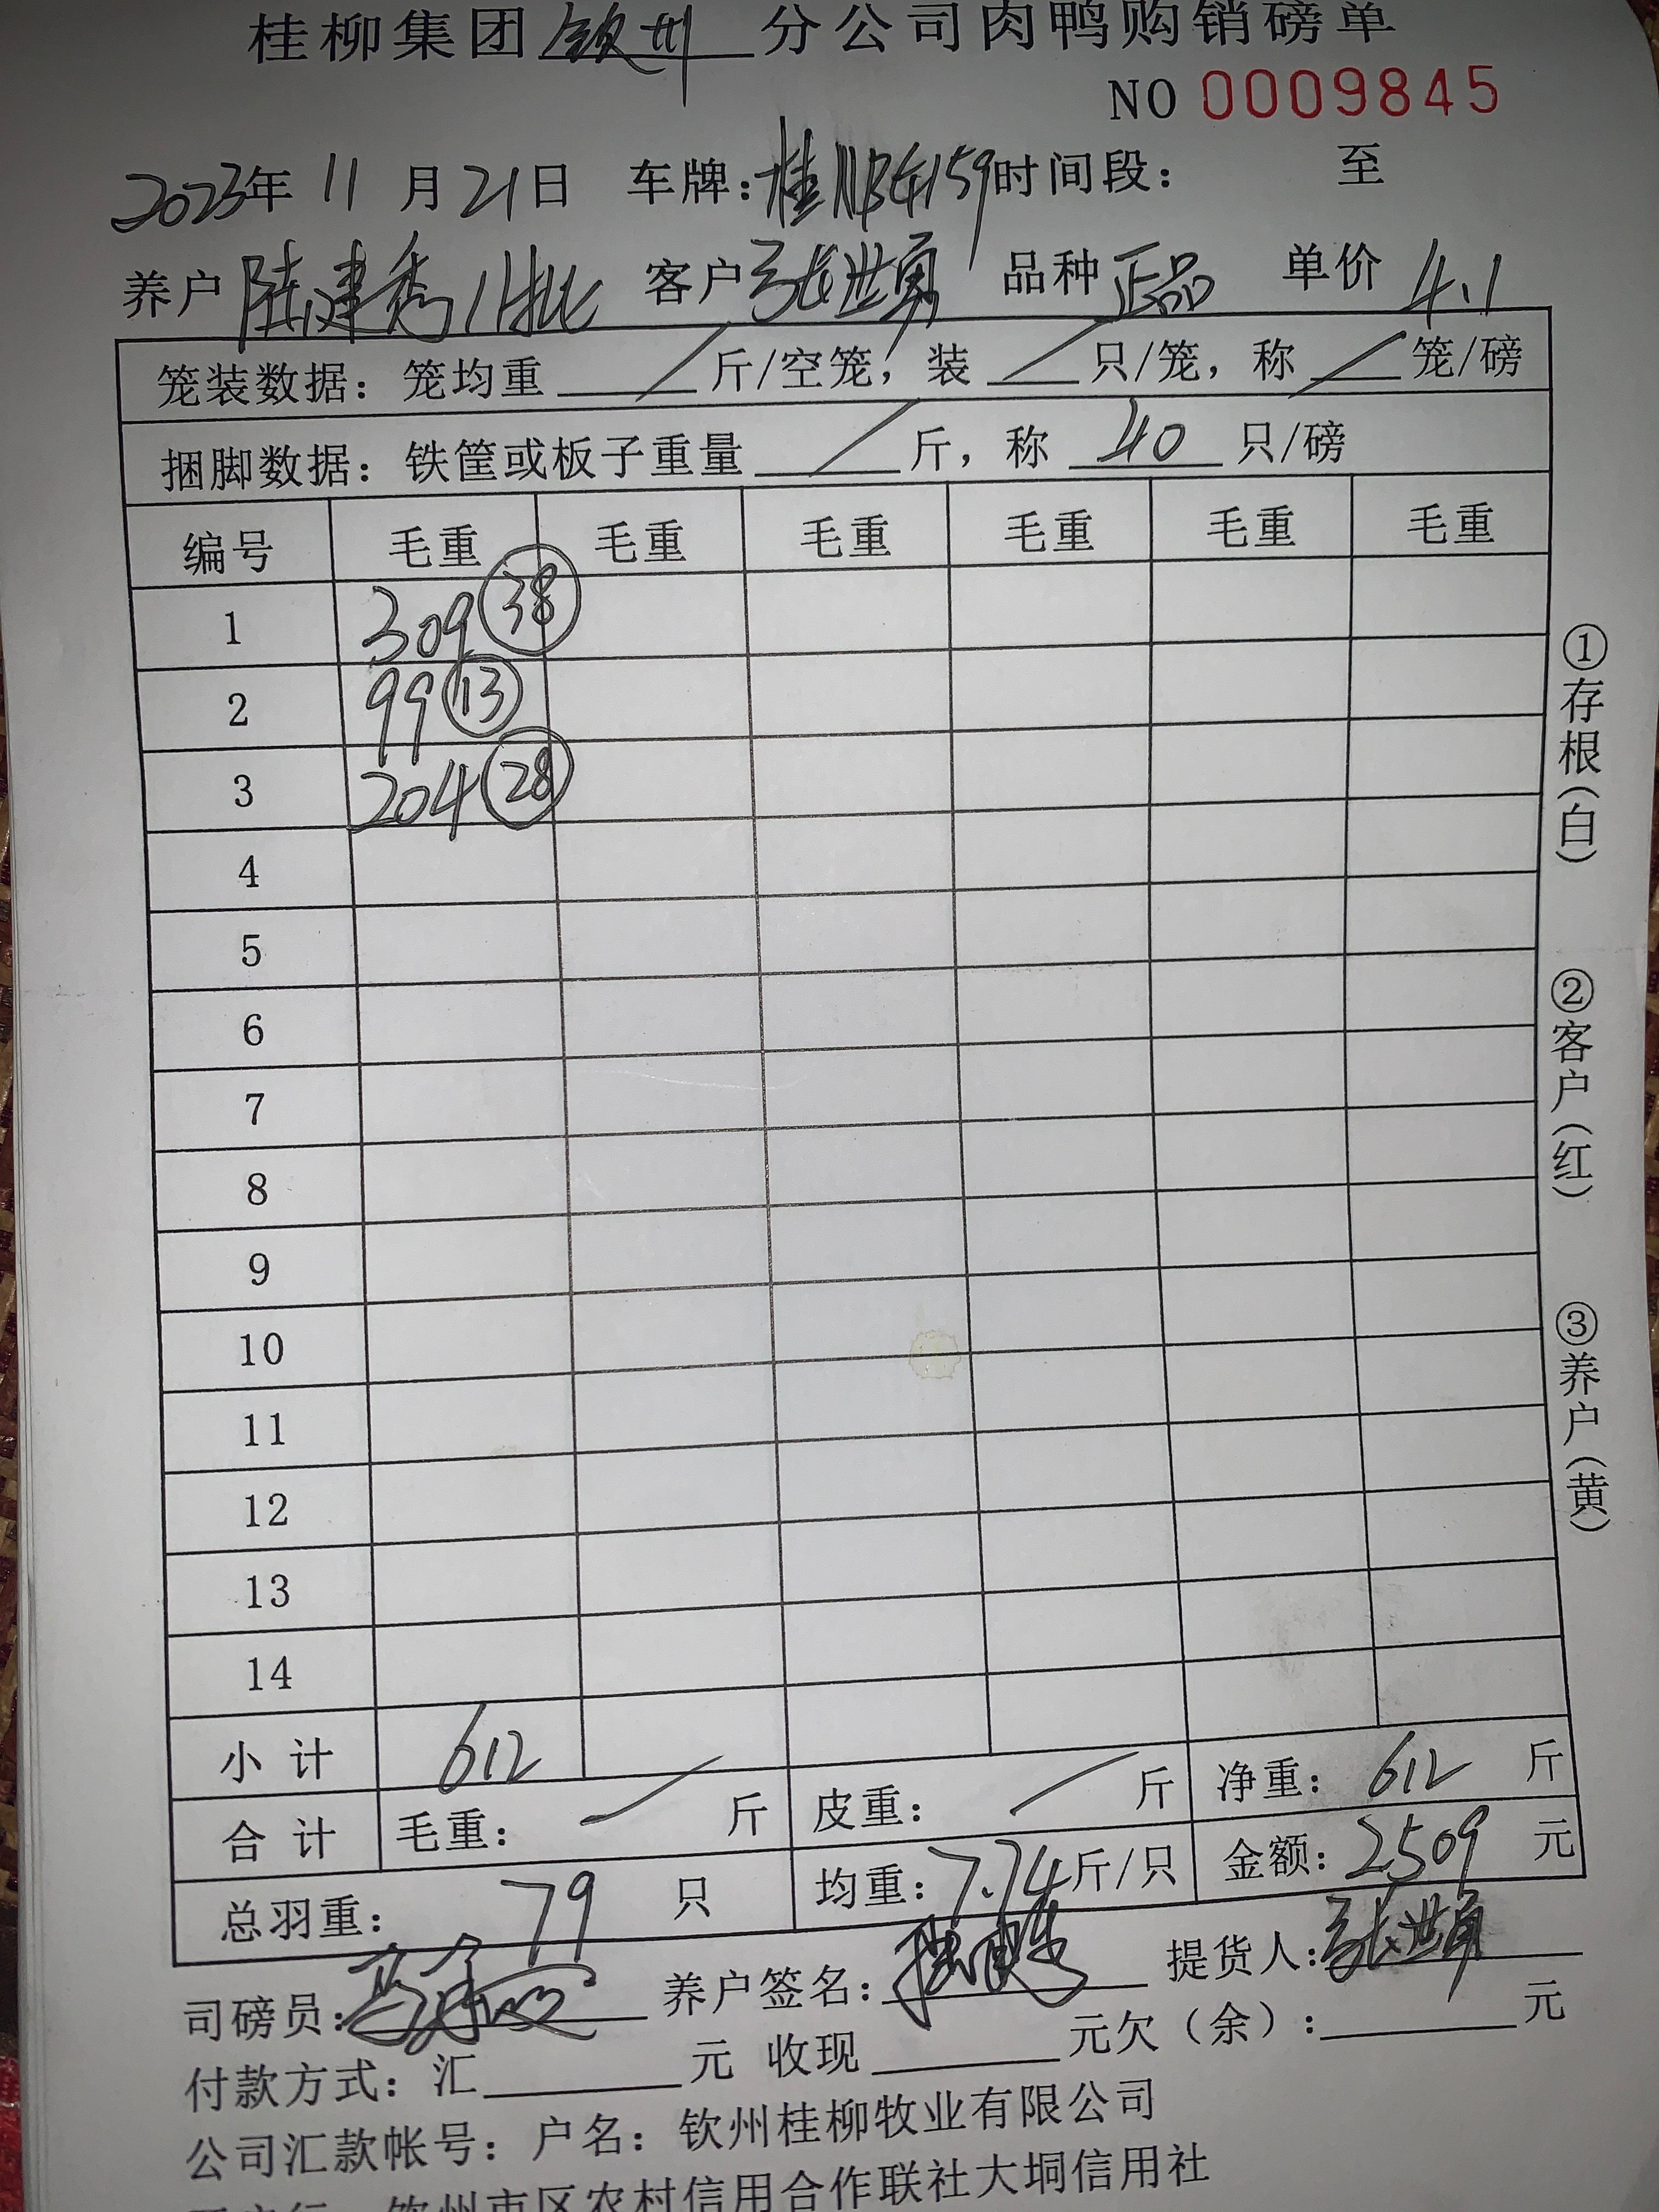 桂柳集团钦州分公司肉鸭购销磅单
NO 0009845
2023年 11 月 21日 车牌:桂 时间段: 至
养户 陆建秀 11批 客户 张世勇 品种 正品 单价 4.1
笼装数据: 笼均重 / 斤/空笼, 装 / 只/笼, 称 / 笼/磅
捆脚数据: 铁筐或板子重量 / 斤, 称 40 只/磅
编号 毛重 毛重 毛重 毛重 毛重 毛重
1 309 38
2 99 13
3 204 28
4
5
6
7
8
9
10
11
12
13
14
小 计 612
合 计 毛重: / 斤 皮重: / 斤 净重: 612 斤
总羽重: 79 只 均重: 7.74 斤/只 金额: 2509 元
司磅员: 养户签名: 提货人: 张世勇
付款方式: 汇 元 收现 元欠(余): 元
公司汇款帐号: 户名: 钦州桂柳牧业有限公司
钦州市区农村信用合作联社大垌信用社
①存根(白)
②客户(红)
③养户(黄)